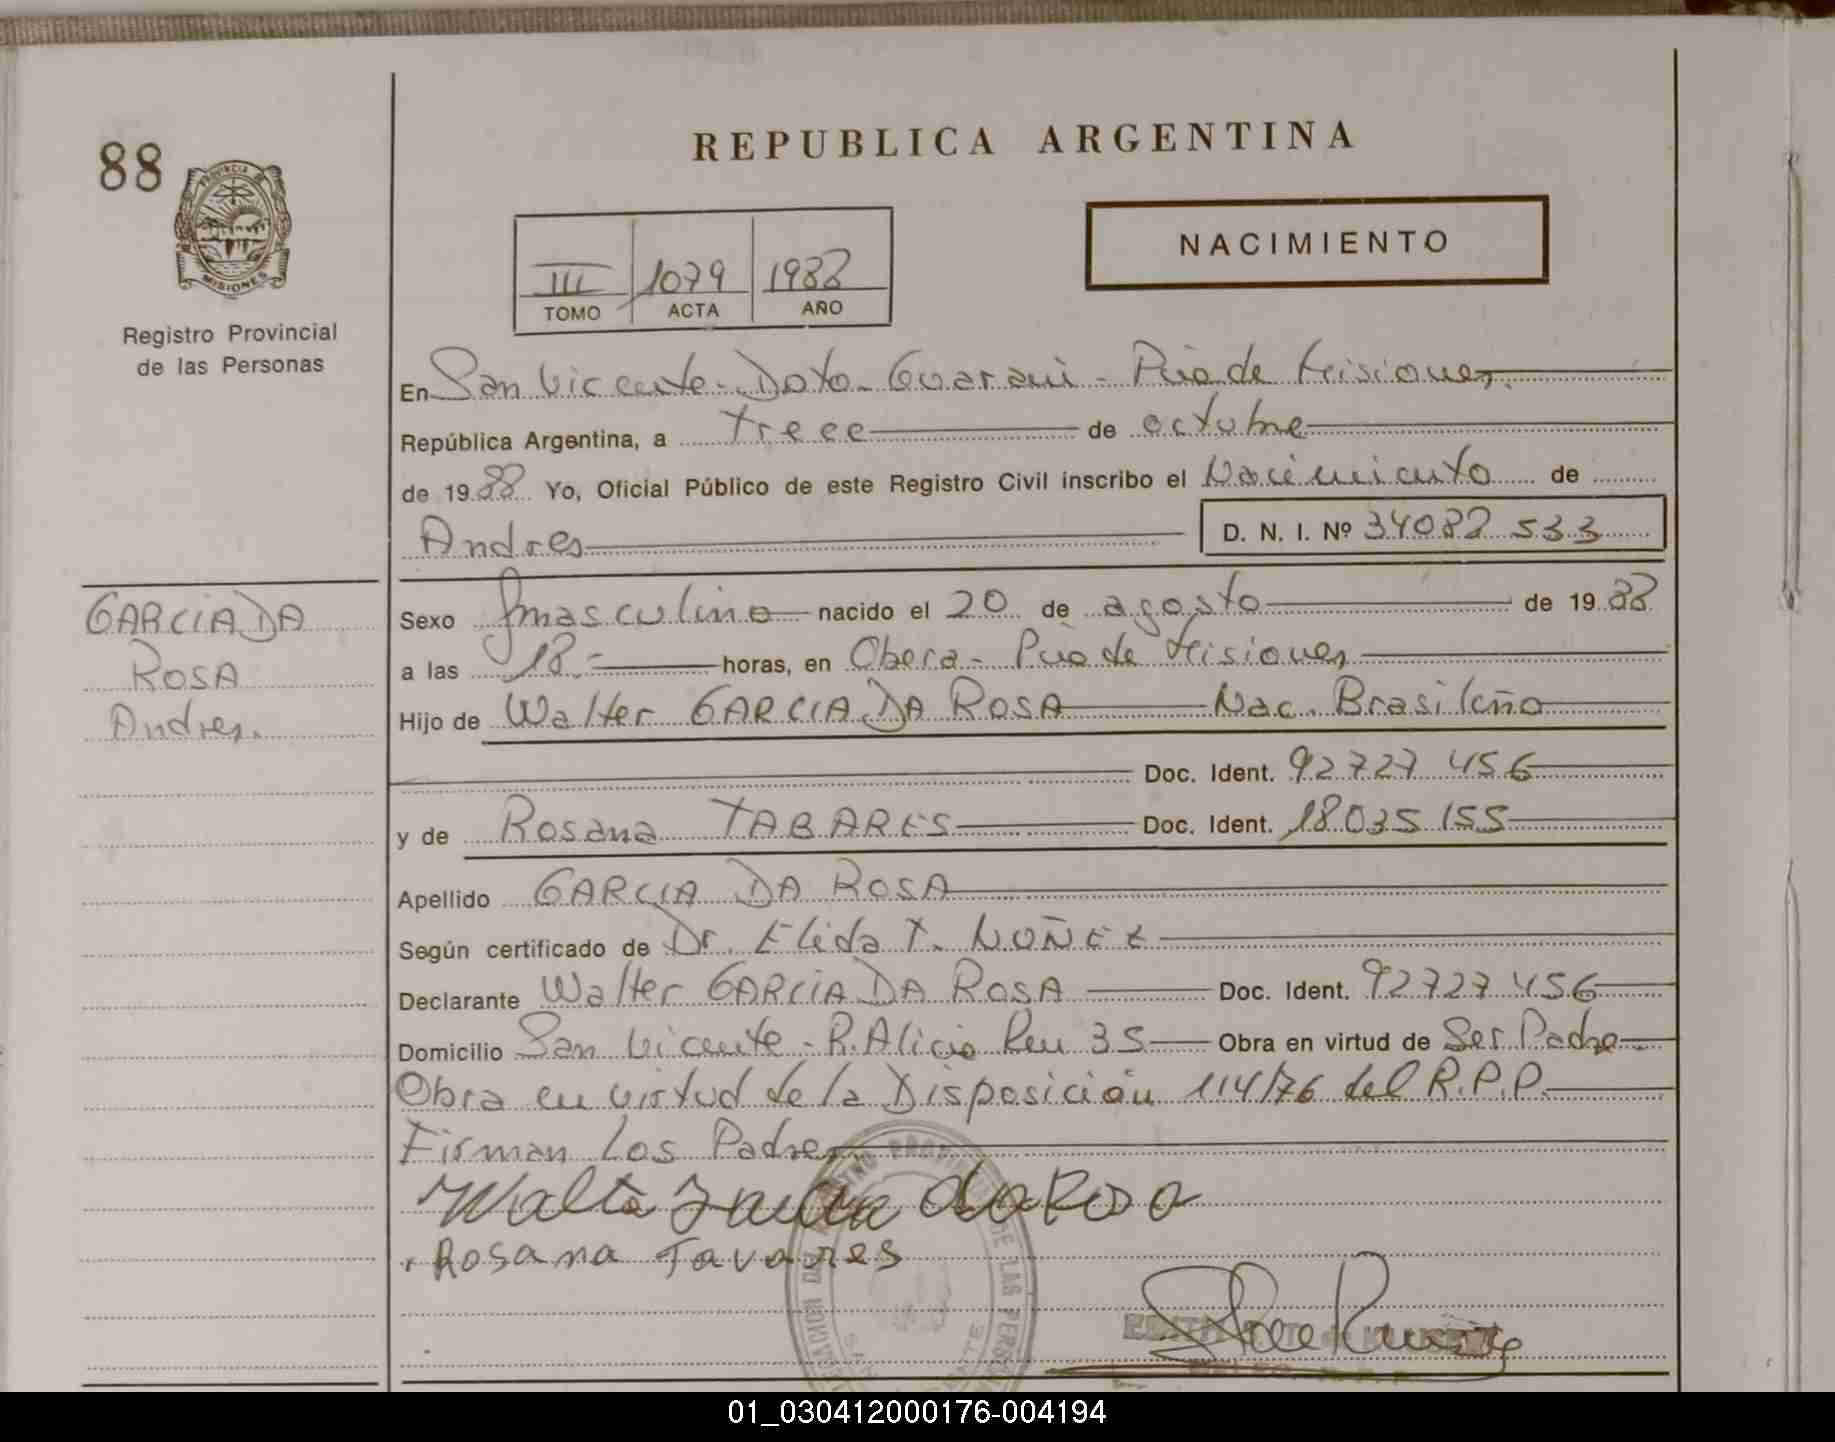 REPUBLICA ARGENTINA
88
PROVINCIA DE
MISIONES
Registro Provincial
de las Personas
NACIMIENTO
III 1079 1988
TOMO ACTA AÑO
En San Vicente - Dpto - Guaraní - Pcia de Misiones
República Argentina, a trece de octubre
de 1988 Yo, Oficial Público de este Registro Civil inscribo el Nacimiento de
Andres D. N. I. Nº 34082 533
GARCIA DA
ROSA
Andres.
Sexo masculino nacido el 20 de agosto de 1988
a las 18.- horas, en Obera - Pcia de Misiones
Hijo de Walter GARCIA DA ROSA Nac. Brasileño
Doc. Ident. 92727 456
y de Rosana TABARES Doc. Ident. 18035 155
Apellido GARCIA DA ROSA
Según certificado de Dr. Elida T. NUÑEZ
Declarante Walter GARCIA DA ROSA Doc. Ident. 92727 456
Domicilio San Vicente - R. Alicia Km 35 Obra en virtud de Ser Padre
Obra en virtud de la Disposición 114/76 del R.P.P.
Firman los Padres
Walter Garcia da Rosa
Rosana Tavares
01_030412000176-004194